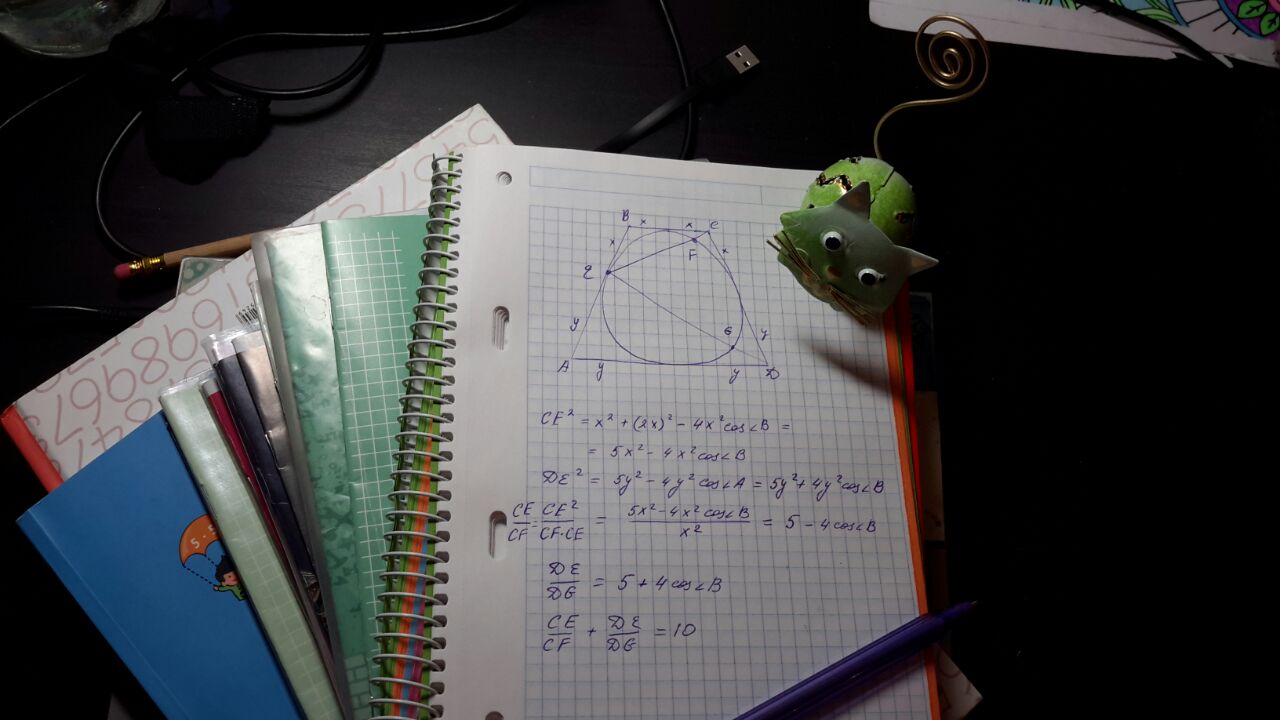 B x x C
x F x
E
y G y
A y y D
CE² = x² + (2x)² - 4x² cos∠B =
= 5x² - 4x² cos∠B
DE² = 5y² - 4y² cos∠A = 5y² + 4y² cos∠B
CE/CF = CE²/CF·CE = 5x² - 4x² cos∠B/x² = 5 - 4cos∠B
DE/DG = 5 + 4cos∠B
CE/CF + DE/DG = 10
5·5